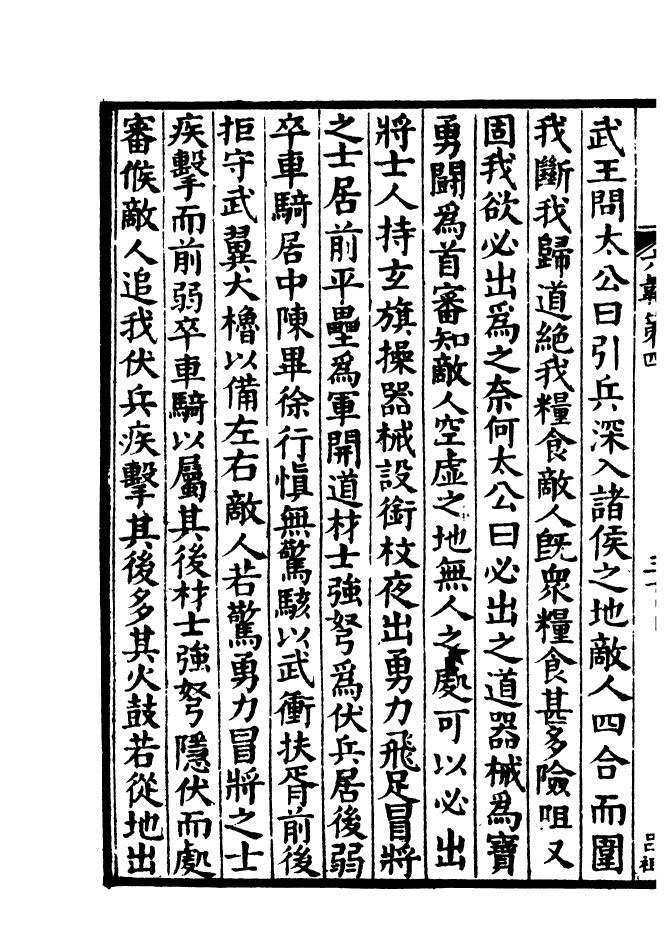 武王問太公曰引兵深入諸侯之地敵人四合而圍
我斷我歸道絕我糧食敵人旣衆糧食甚多險咀又
固我欲必出爲之奈何太公曰必出之道器械爲寶
勇鬪爲首審知敵人空虚之地無人之處可以必出
將士人持玄旗操器械設銜枚夜出勇力飛足冒將
之士居前平壘爲軍開道材士強弩爲伏兵居後弱
卒車騎居中陳畢徐行愼無驚駭以武衝扶胥前後
拒守武翼大櫓以備左右敵人若驚勇力冒將之士
疾擊而前弱卒車騎以屬其後材士強弩隱伏而處
審候敵人追我伏兵疾擊其後多其火鼓若從地出